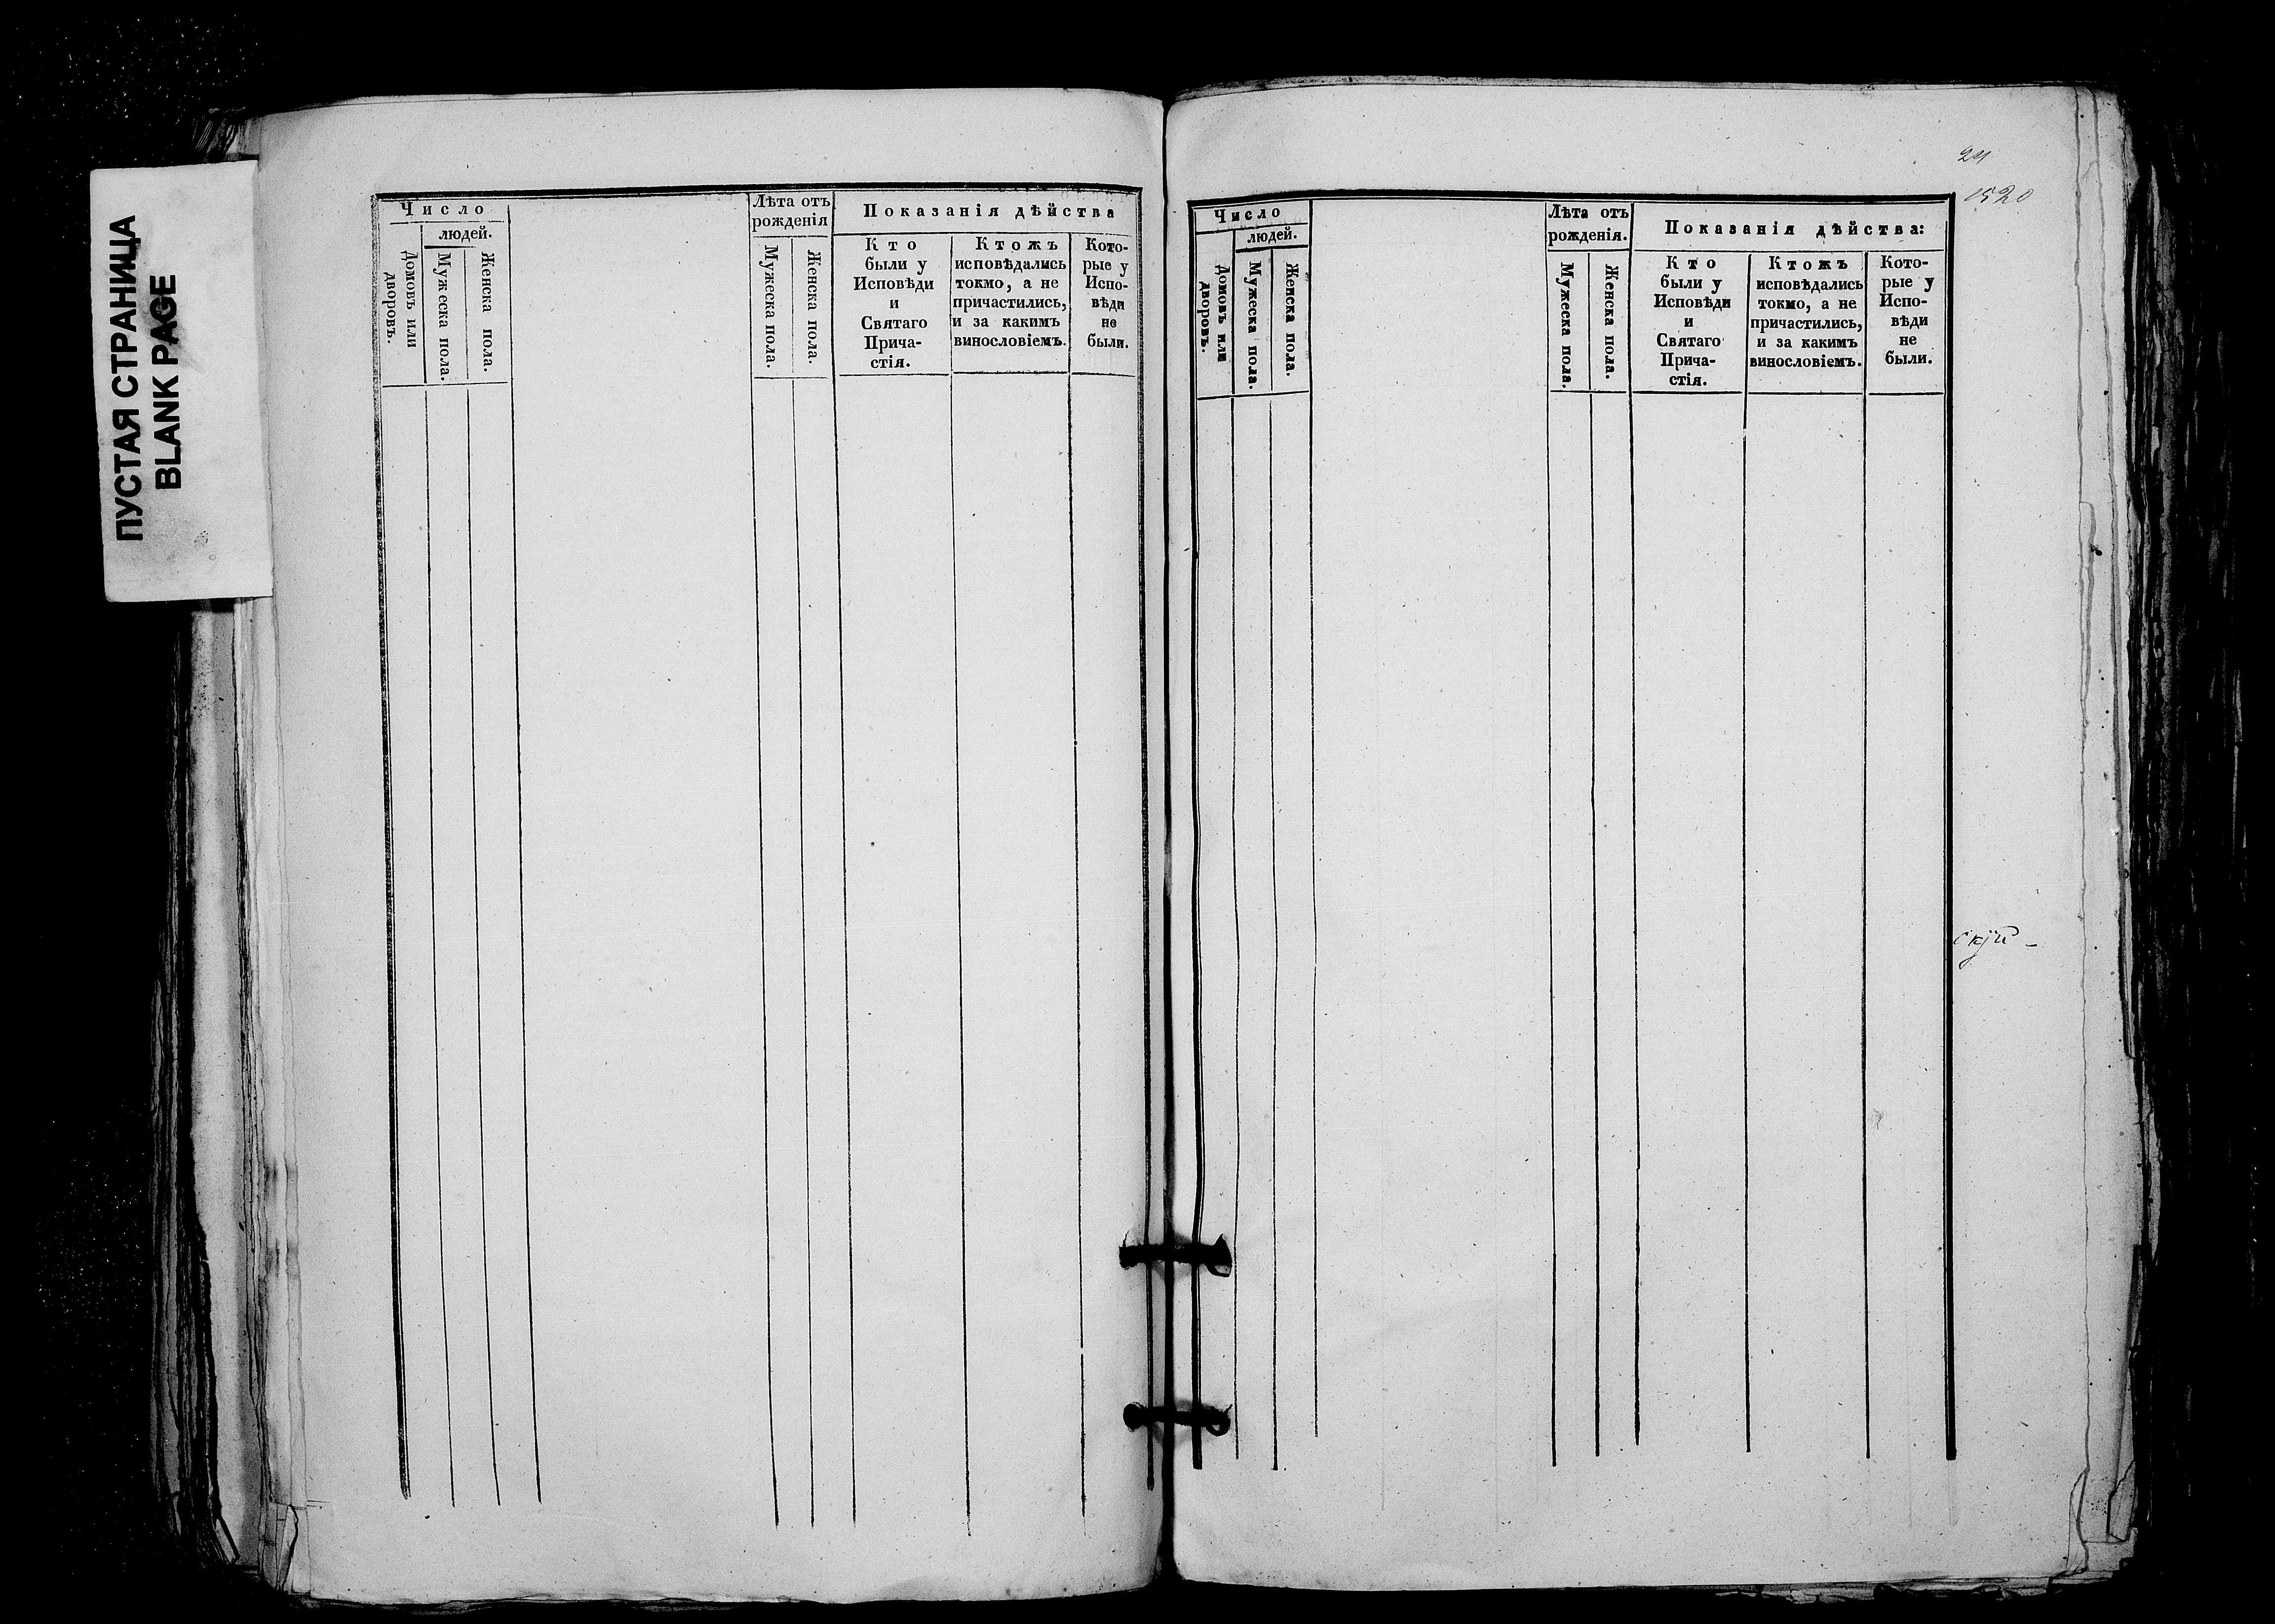 ПУСТАЯ СТРАНИЦА
BLANK PAGE
Число
людей.
Домовъ или
дворовъ.
Мужеска пола.
Женска пола.
Лѣта отъ
рожденія
Мужеска пола.
Женска пола.
Показанія дѣйства
Кто
были у
Исповѣди
и
Святаго
Прича-
стія.
Ктожъ
исповѣдались
токмо, а не
причастились,
и за какимъ
винословіемъ.
Кото-
рые у
Испо-
вѣди
не
были.
24
1520
Число
людей.
Домовъ или
дворовъ.
Мужеска пола.
Женска пола.
Лѣта отъ
рожденія.
Мужеска пола.
Женска пола.
Показанія дѣйства:
Кто
были у
Исповѣди
и
Святаго
Прича-
стія.
Ктожъ
исповѣдались
токмо, а не
причастились,
и за какимъ
винословіемъ.
Кото-
рые у
Испо-
вѣди
не
были.